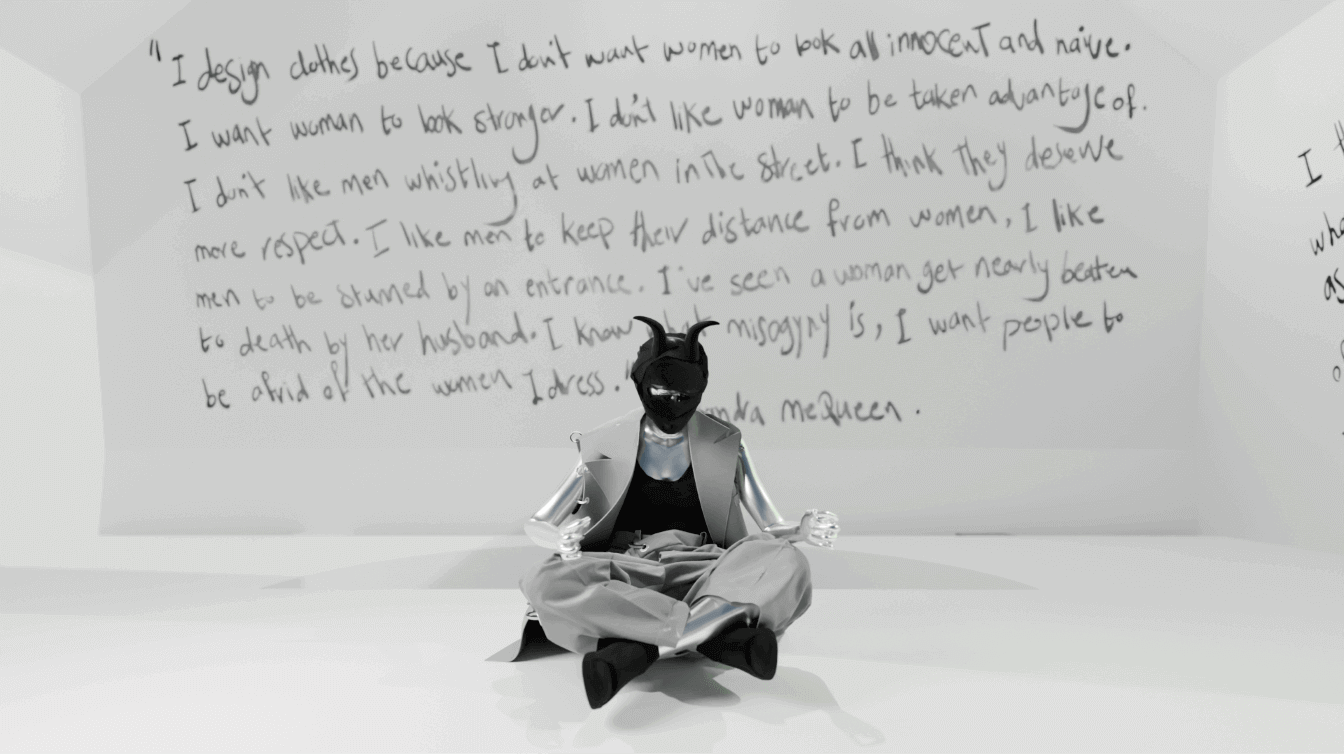 "I design clothes because I don't want women to look all innocent and naive.
I want woman to look stronger. I don't like woman to be taken advantage of.
I don't like men whistling at women in the street. I think they deserve
more respect. I like men to keep their distance from women, I like
men to be stunned by an entrance. I've seen a woman get nearly beaten
to death by her husband. I know what misogyny is, I want people to
be afrid of the women I dress."
McQueen.
I
as